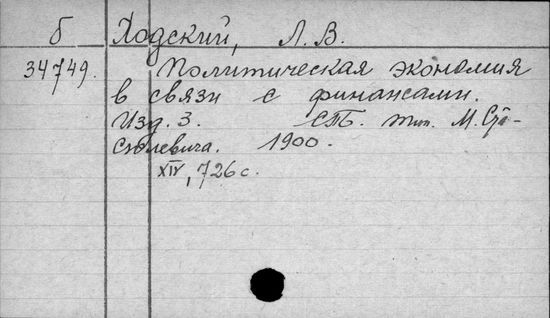 б Ходский, Л. В.
34749. Политическая экономия
в связи с финансами.
Изд. 3. СПБ. тип. М. Ста-
сюлевича. 1900.
XIV, 726 с.